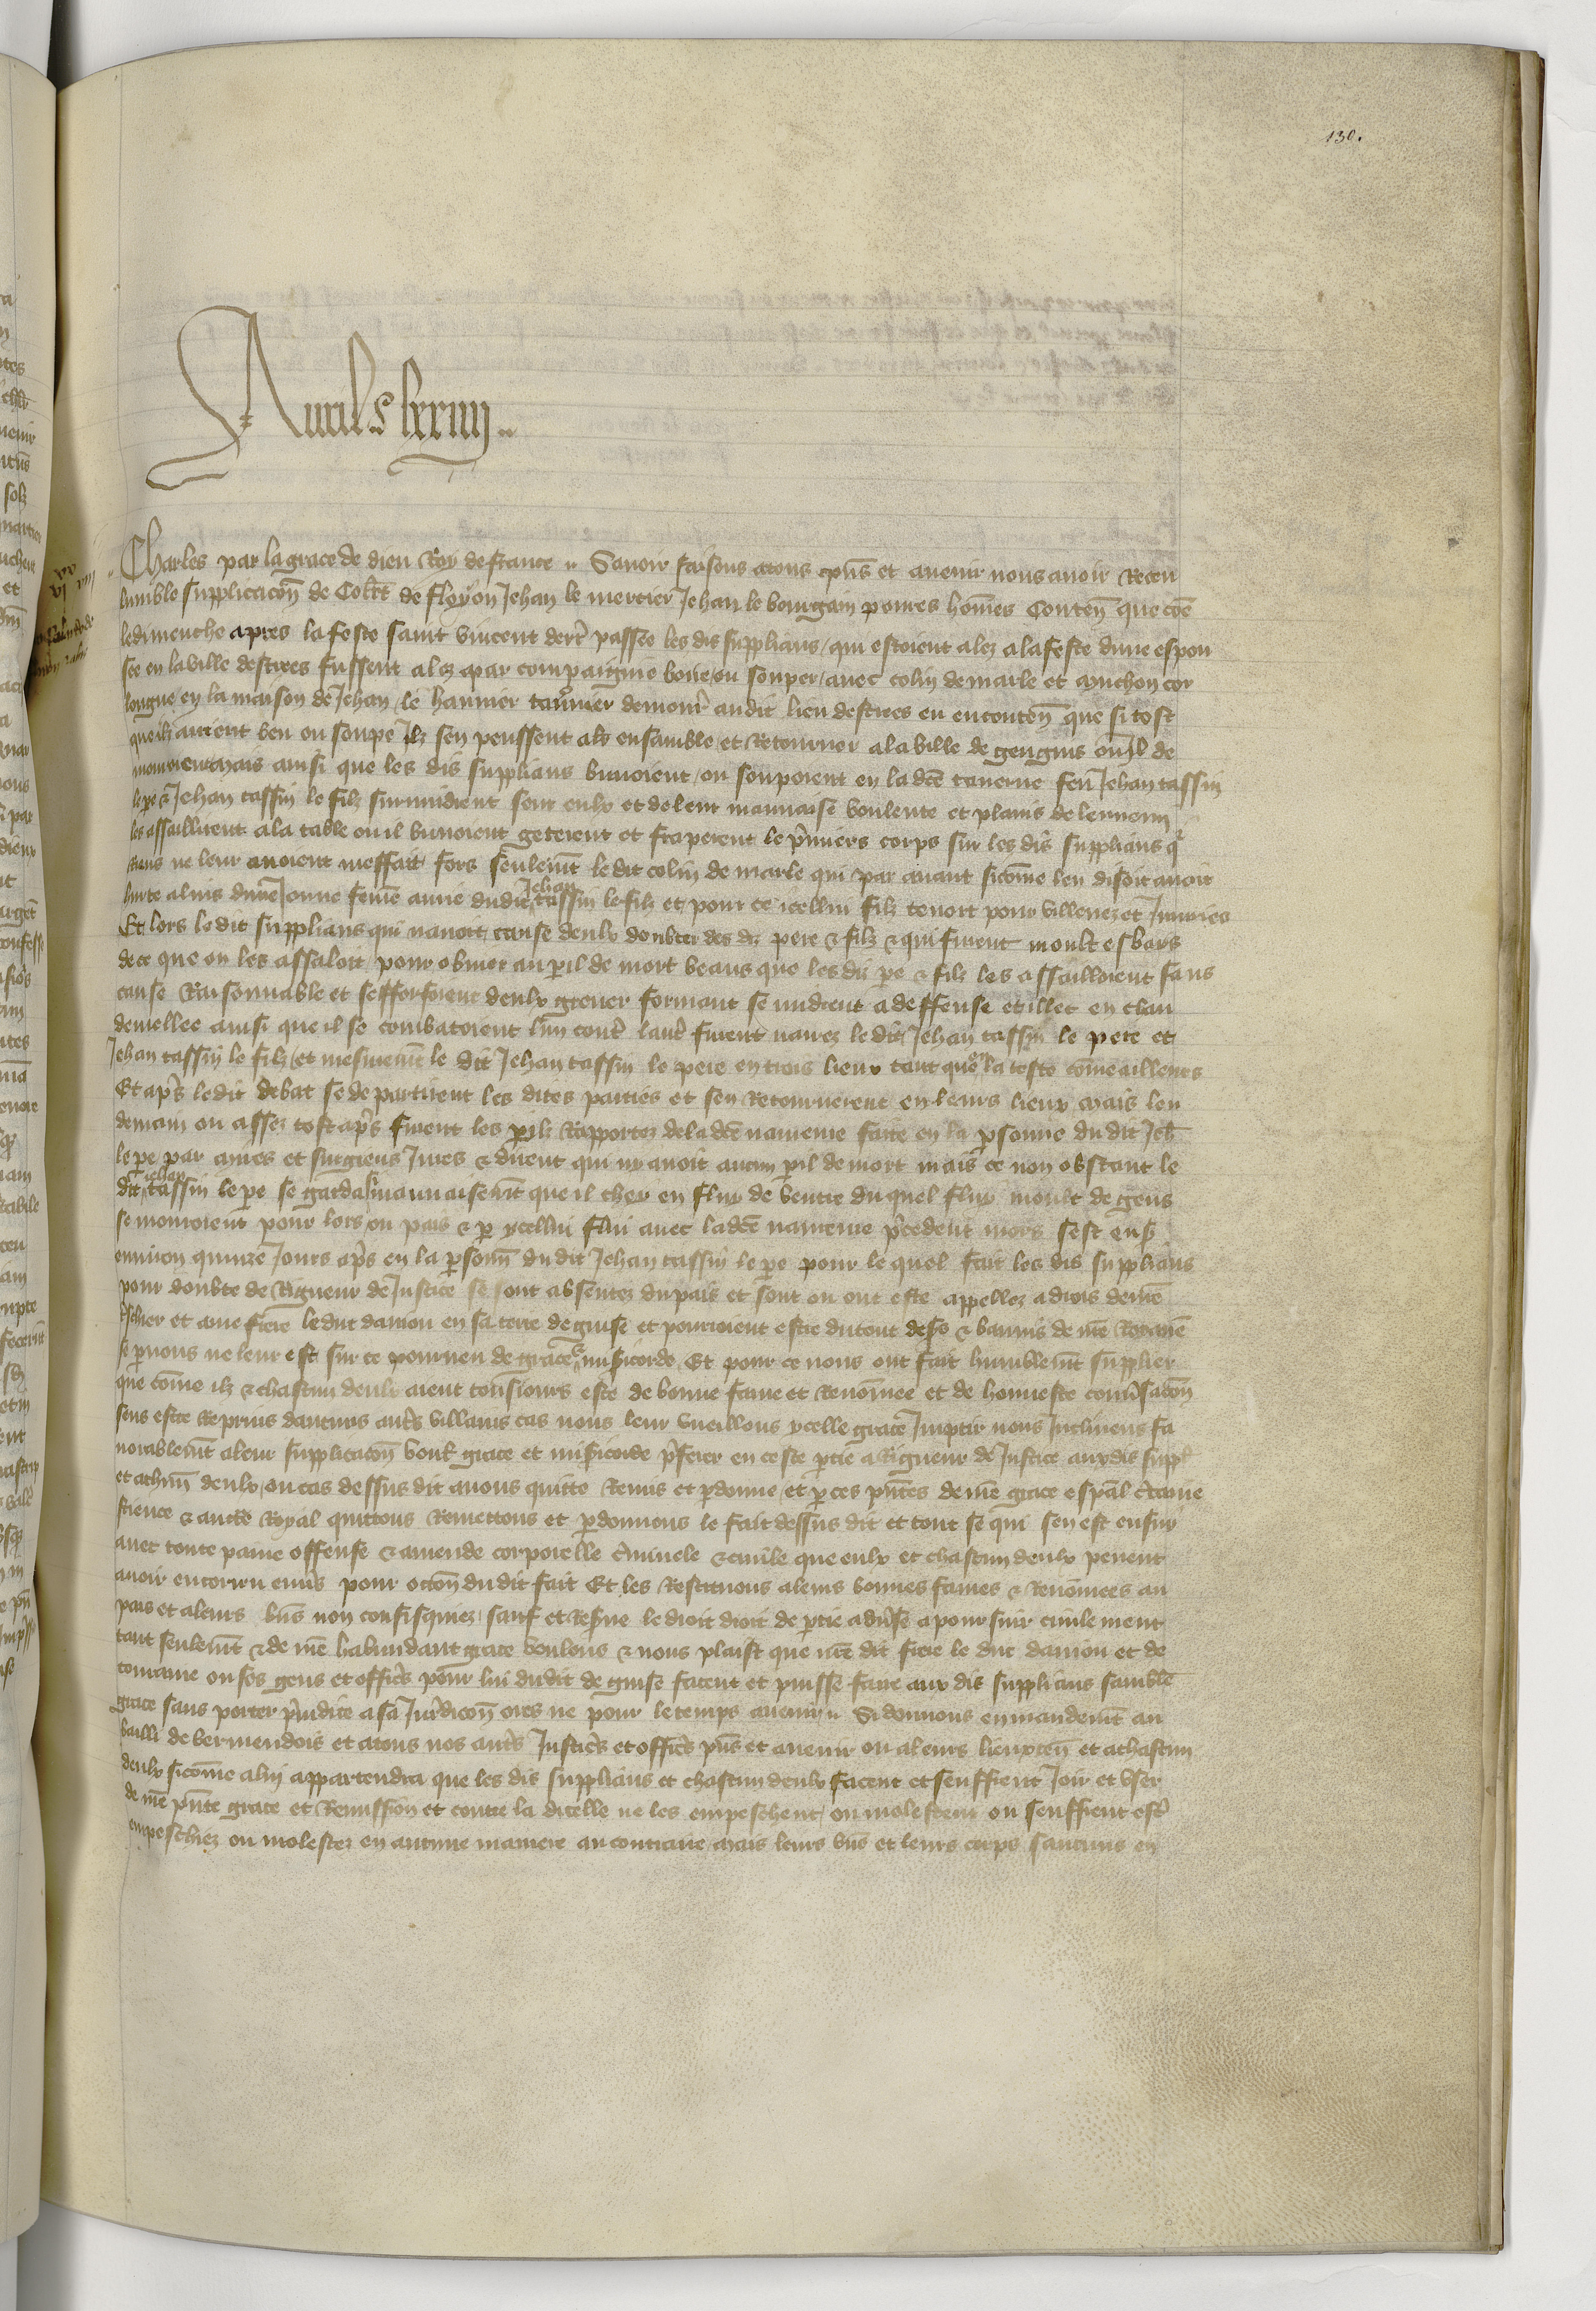 130.
Aurils lxxiiii
Charles par la grace de dieu Roy de france Savoir faisons a tous pñs et avenir nous avoir Receu
lumble supplicacõn de Colet de floyon Jehan le mercier Jehan le bourgain povres hõmes Conteñ que cõe
le dimenche apres la feste saint vincent derr passee les dis supplians qui estoient alez a la feste dune espou
see en la ville destrees fussent alez par compaignie boire ou souper avec colin de marle et ponchon cor
longue en la maison de Jehan le hannier tavnier demour audit lieu destrees en entenceñ que si tost
que ilz auroient beu ou soupe Ilz sen peussent aler ensamble et Retourner a la ville de gengnis ou Il de
mouroient mais ainsi que les dis supplians buvoient ou souppoient en la dce taverne feu Jehan tassin
le pe et Jehan tassin le filz survindrent seur eulx et de leur mauvaise voulente et plains de lennemi
les assaillirent a la table ou il buvoient geterent et fraperent le pmiers corps sur les dis supplians q
riens ne leur avoient meffait fors seulemt le dit colin de marle qui par avant sicõme len disoit avoit
hurte a luis dune Jonne feme amie dudit Jehan tassin le filz et pour ce icellui filz tenoit pour villenez et Injuries
Et lors le dit supplians qui navoit cause deulx doubter des diz pere & filz & qui furent moult esbays
de ce que on les assaloit pour obvier au pil de mort veans que les diz pe & filz les assailloient sans
cause Raisonnable et sefforsoient deulx grever forment se mirent a deffense et illec en chau
demellee ainsi que il se combatoient lun contr lautr furent navrez le dit Jehan tassin le pere et
Jehan tassin le filz et mesmemt le dit Jehan tassin le pere en trois lieux tant que en la teste cõme ailleurs
Et aps le dit debat se departirent les dites parties et sen Retournerent en leurs lieux mais len
demain ou assez tost aps furent les pilz Rapportez de la dce navreure faite en la psonne du dit Jeh
le pe par mires et surgiens Jures & dirent qui ny avoit aucun pil de mort mais ce non obstant le
dit Jehan tassin le pe se garda si mauvaisemt que il chey en flux de ventre duquel flux moult de gens
se mouroient pour lors ou pais & p ycellui flux avec la dce navreure pcedent mors sest ens
environ quinze Jours aps en la psonn du dit Jehan tassin le pe pour le quel fait les dis supplians
pour doubte de Rigueur de Justice se sont absentez du pais et sont ou ont este appellez a drois de nre
tscher et ame frere le duc danjou en sa terre de guise et pourroient estre du tout desers & bannis de nre Royaume
se p nous ne leur est sur ce pourveu de grace & misicorde Et pour ce nous ont fait humblemt supplier
que cõme ilz & chascun deulx aient tousjours este de bonne fame et Renõmee et de honneste convsacõn
sens estre Reprins daucuns autrs villains cas nous leur vueillons ycelle grace Impartir nous Inclinens fa
vorablemt a leur supplicacõn voult grace et misicorde pferer en ceste ptie a Rigueur de Justice aux dis suppl
et a chun deulx ou cas dessus dit avons quitte Remis et pdonne et p ces pntes de nre grace espal ctaine
science & aucte Royal quittons Remettons et pdonnons le fait dessus dit et tout se qui sen est ensuy
avec toute paine offense & amende corporelle criminele & civile que eulx et chascun deulx pevent
avoir encorru envs pour occon du dit fait Et les Restituons a leurs bonnes fames & Renõmees au
pais et a leurs bns non confisquiez sauf et Resrve le droit droit de ptie advse a poursuir civilement
tant seulemt & de nre habundant grace voulons & nous plaist que nre dit frere le duc danjou et de
touraine ou ses gens et officrs pour lui du dit de guise facent et puisse faire aux dis supplians samble
grace sans porter prjudice a sa Juridicon ores ne pour le temps avenir Si donnons en mandemt au
bailli de vermendois et a tous nos autrs Justicrs et officrs pns et avenir ou a leurs lieuxteñ et a chascun
deulx sicõme a luy appartendra que les dis supplians et chascun deulx facent et seuffrent Joir et user
de nre pnte grace et Remission et contre la dicelle ne les empeschent ou molestent ou seuffrent estr
empeschiez ou molestez en aucune maniere au contraire mais leurs bns et leurs corps saucuns en